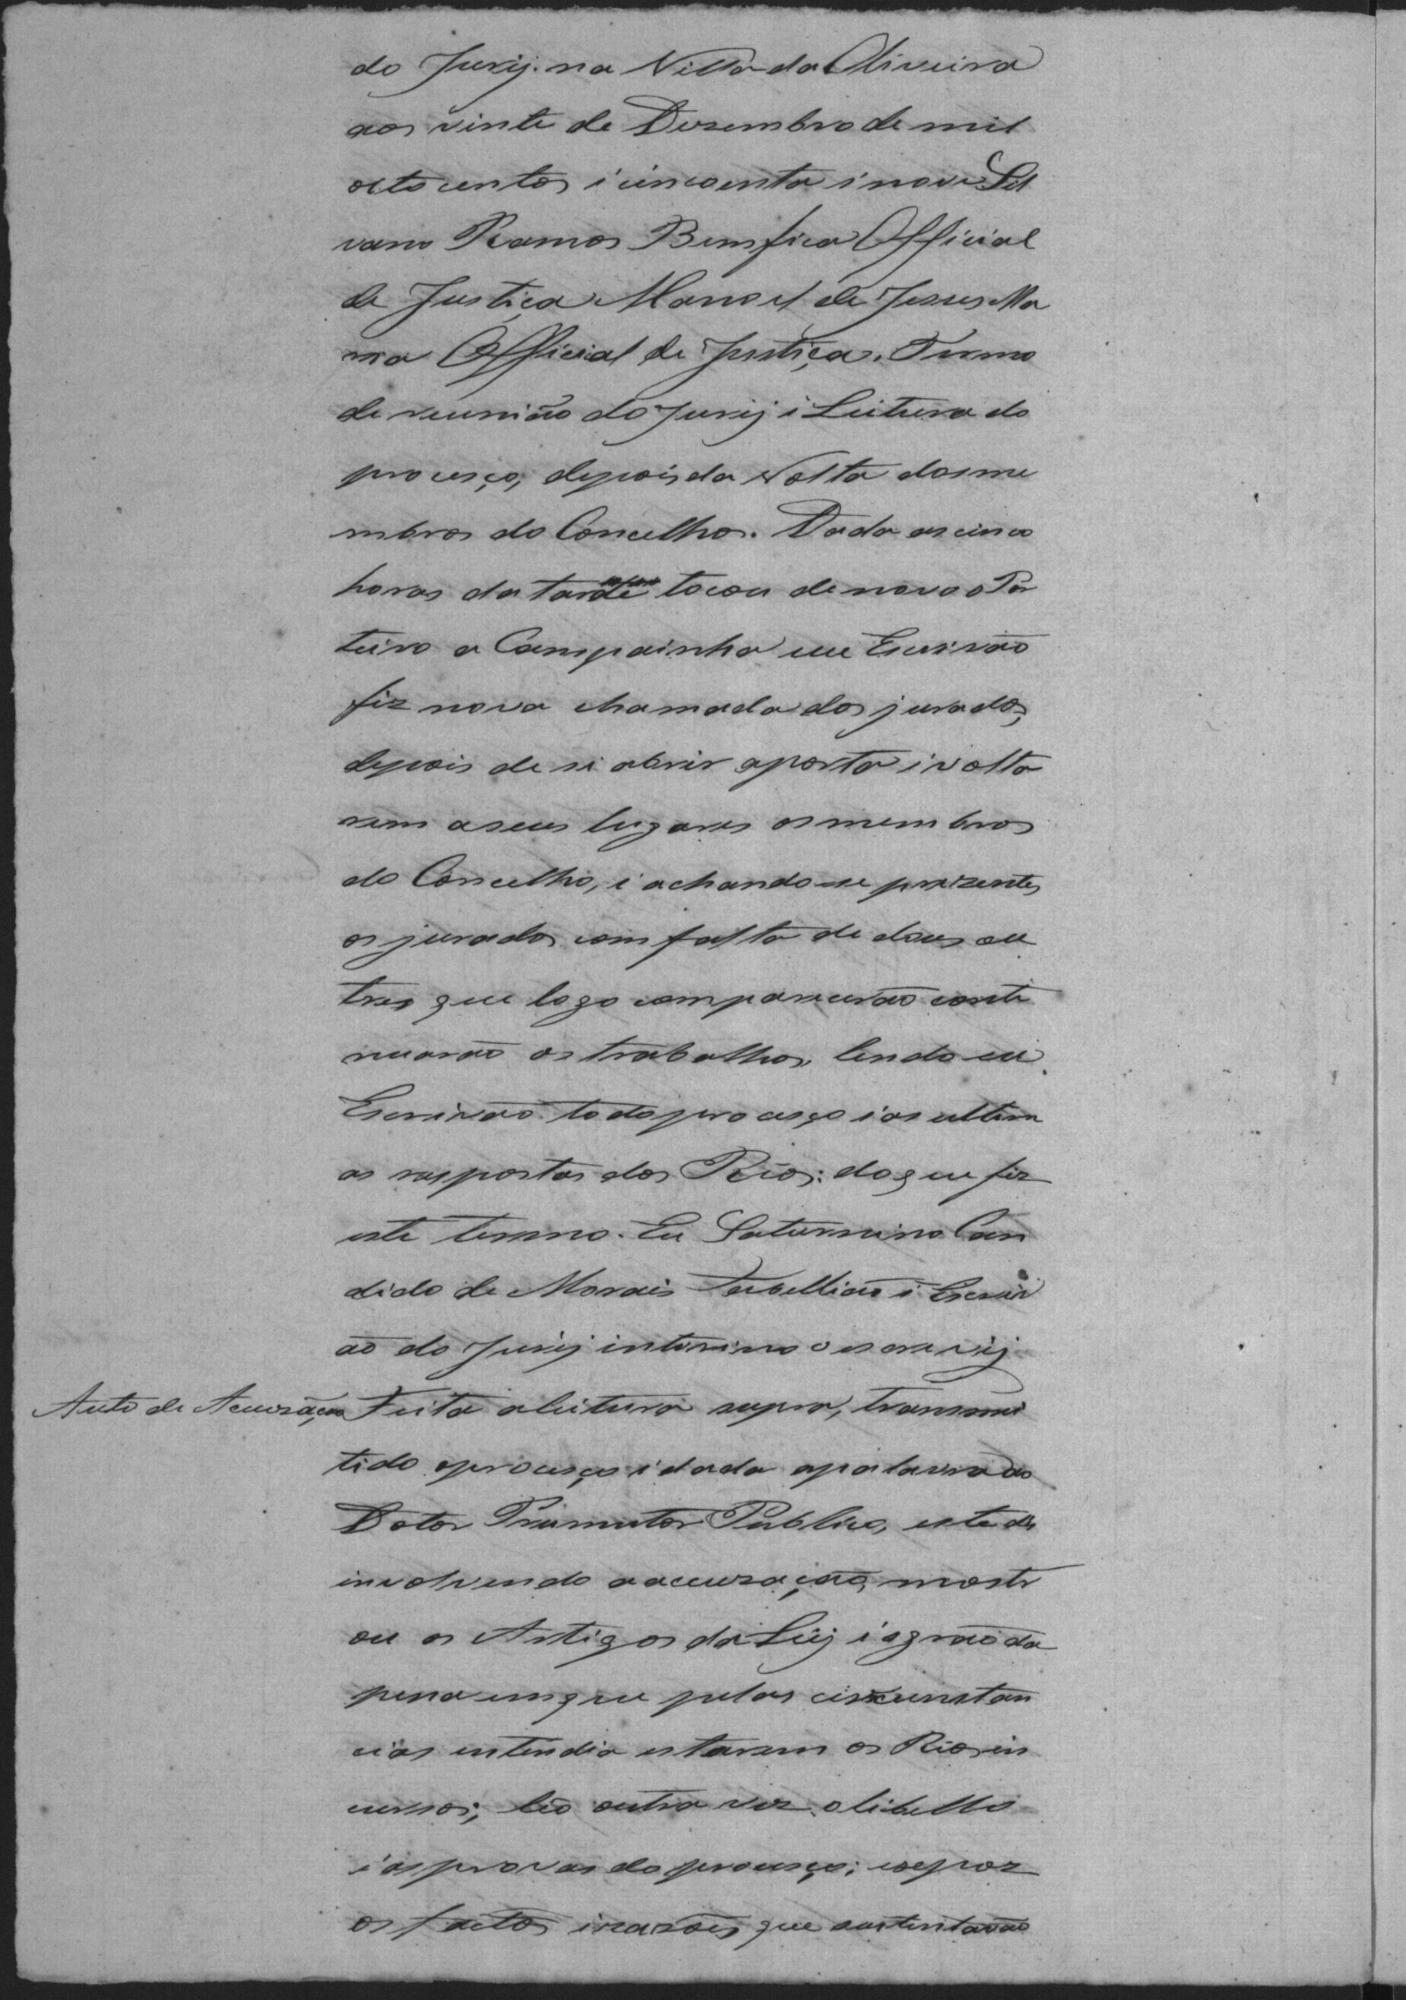 do Jurij. na Villa da Oliveira
aos vinte de Desembro de mil
oitocentos i cincoenta i nove Sil
vano Ramos Bemfica Official
de Justiça. Manoel de Jesus Ma
ria Official de Justiça. Termo
de reunião do Jurij i Leitura do
procesço, depois da Volta dos me
mbros do Concelho. Dada as cinco
horas da tarde tocou de novo o Por
teiro a Campainha eu Escrivão
fiz nova chamada dos jurados,
depois de si abrir aporta i volta
rem aseus lugares os membros
do Concelho, i achando-se prezentes
os jurados com falta de dous ou
tres que logo comparecerão conti
nuarão os trabalhos, lendo eu
Escrivão todo procesço i as ultim
as respostas dos Réos: do que fiz
este termo. Eu Saturnino Can
dido de Morais Tabellião i Escriv
ão do Jurij interino o escrevij
Auto de Acuzação Feita aleitura supra, transmi
tido oprocesço i dada apalavra ao
Dotor Promutor Publico, este de
involvendo aacuzação, mostr
ou os Artigos da Leij i ográo da
pena emque pelas circunstan
cias entendia estarem os Réos in
cursos; léo outra vez olibello
i as provas do procesço; expoz
os factos irazões que sustentavão